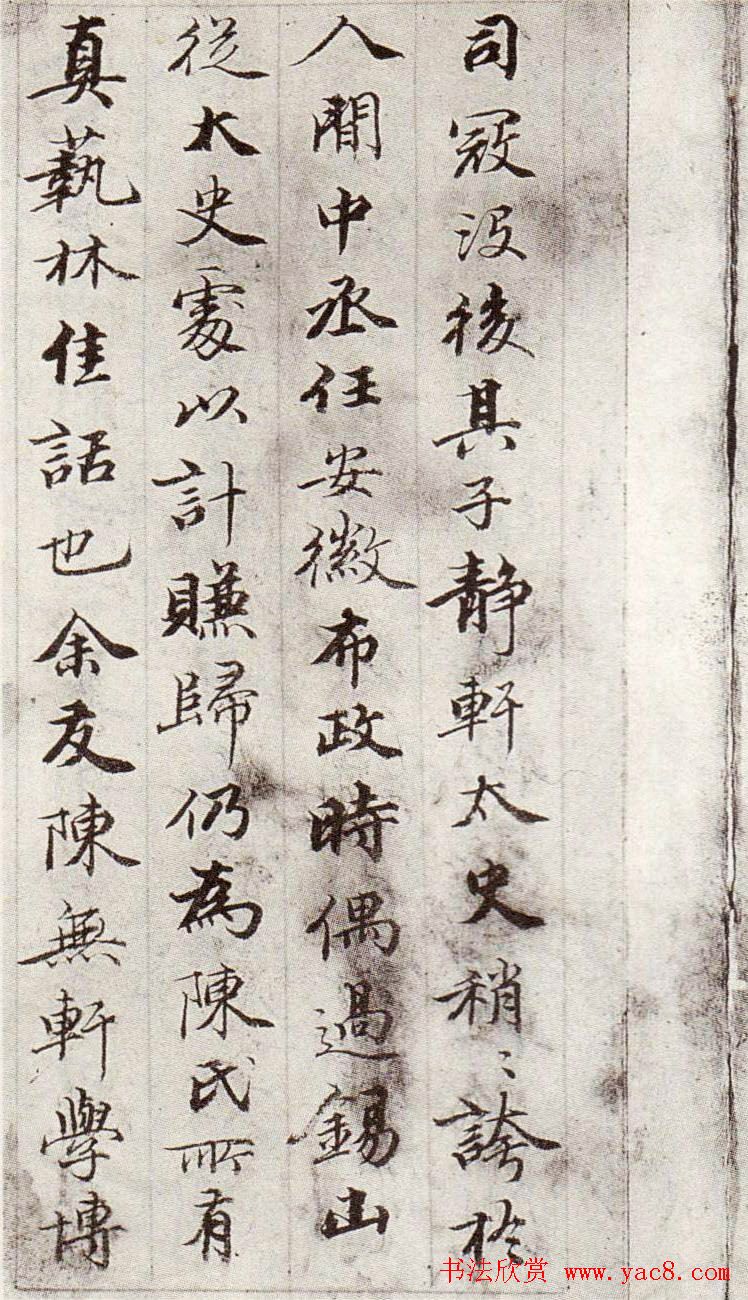 司寇沒後其子静軒太史稍〻誇於
人間中丞任安徽布政時偶過錫山
從太史處以計賺歸仍為陳氏所有
真藝林佳話也余友陳無軒學博
书法欣赏 www.yac8.com